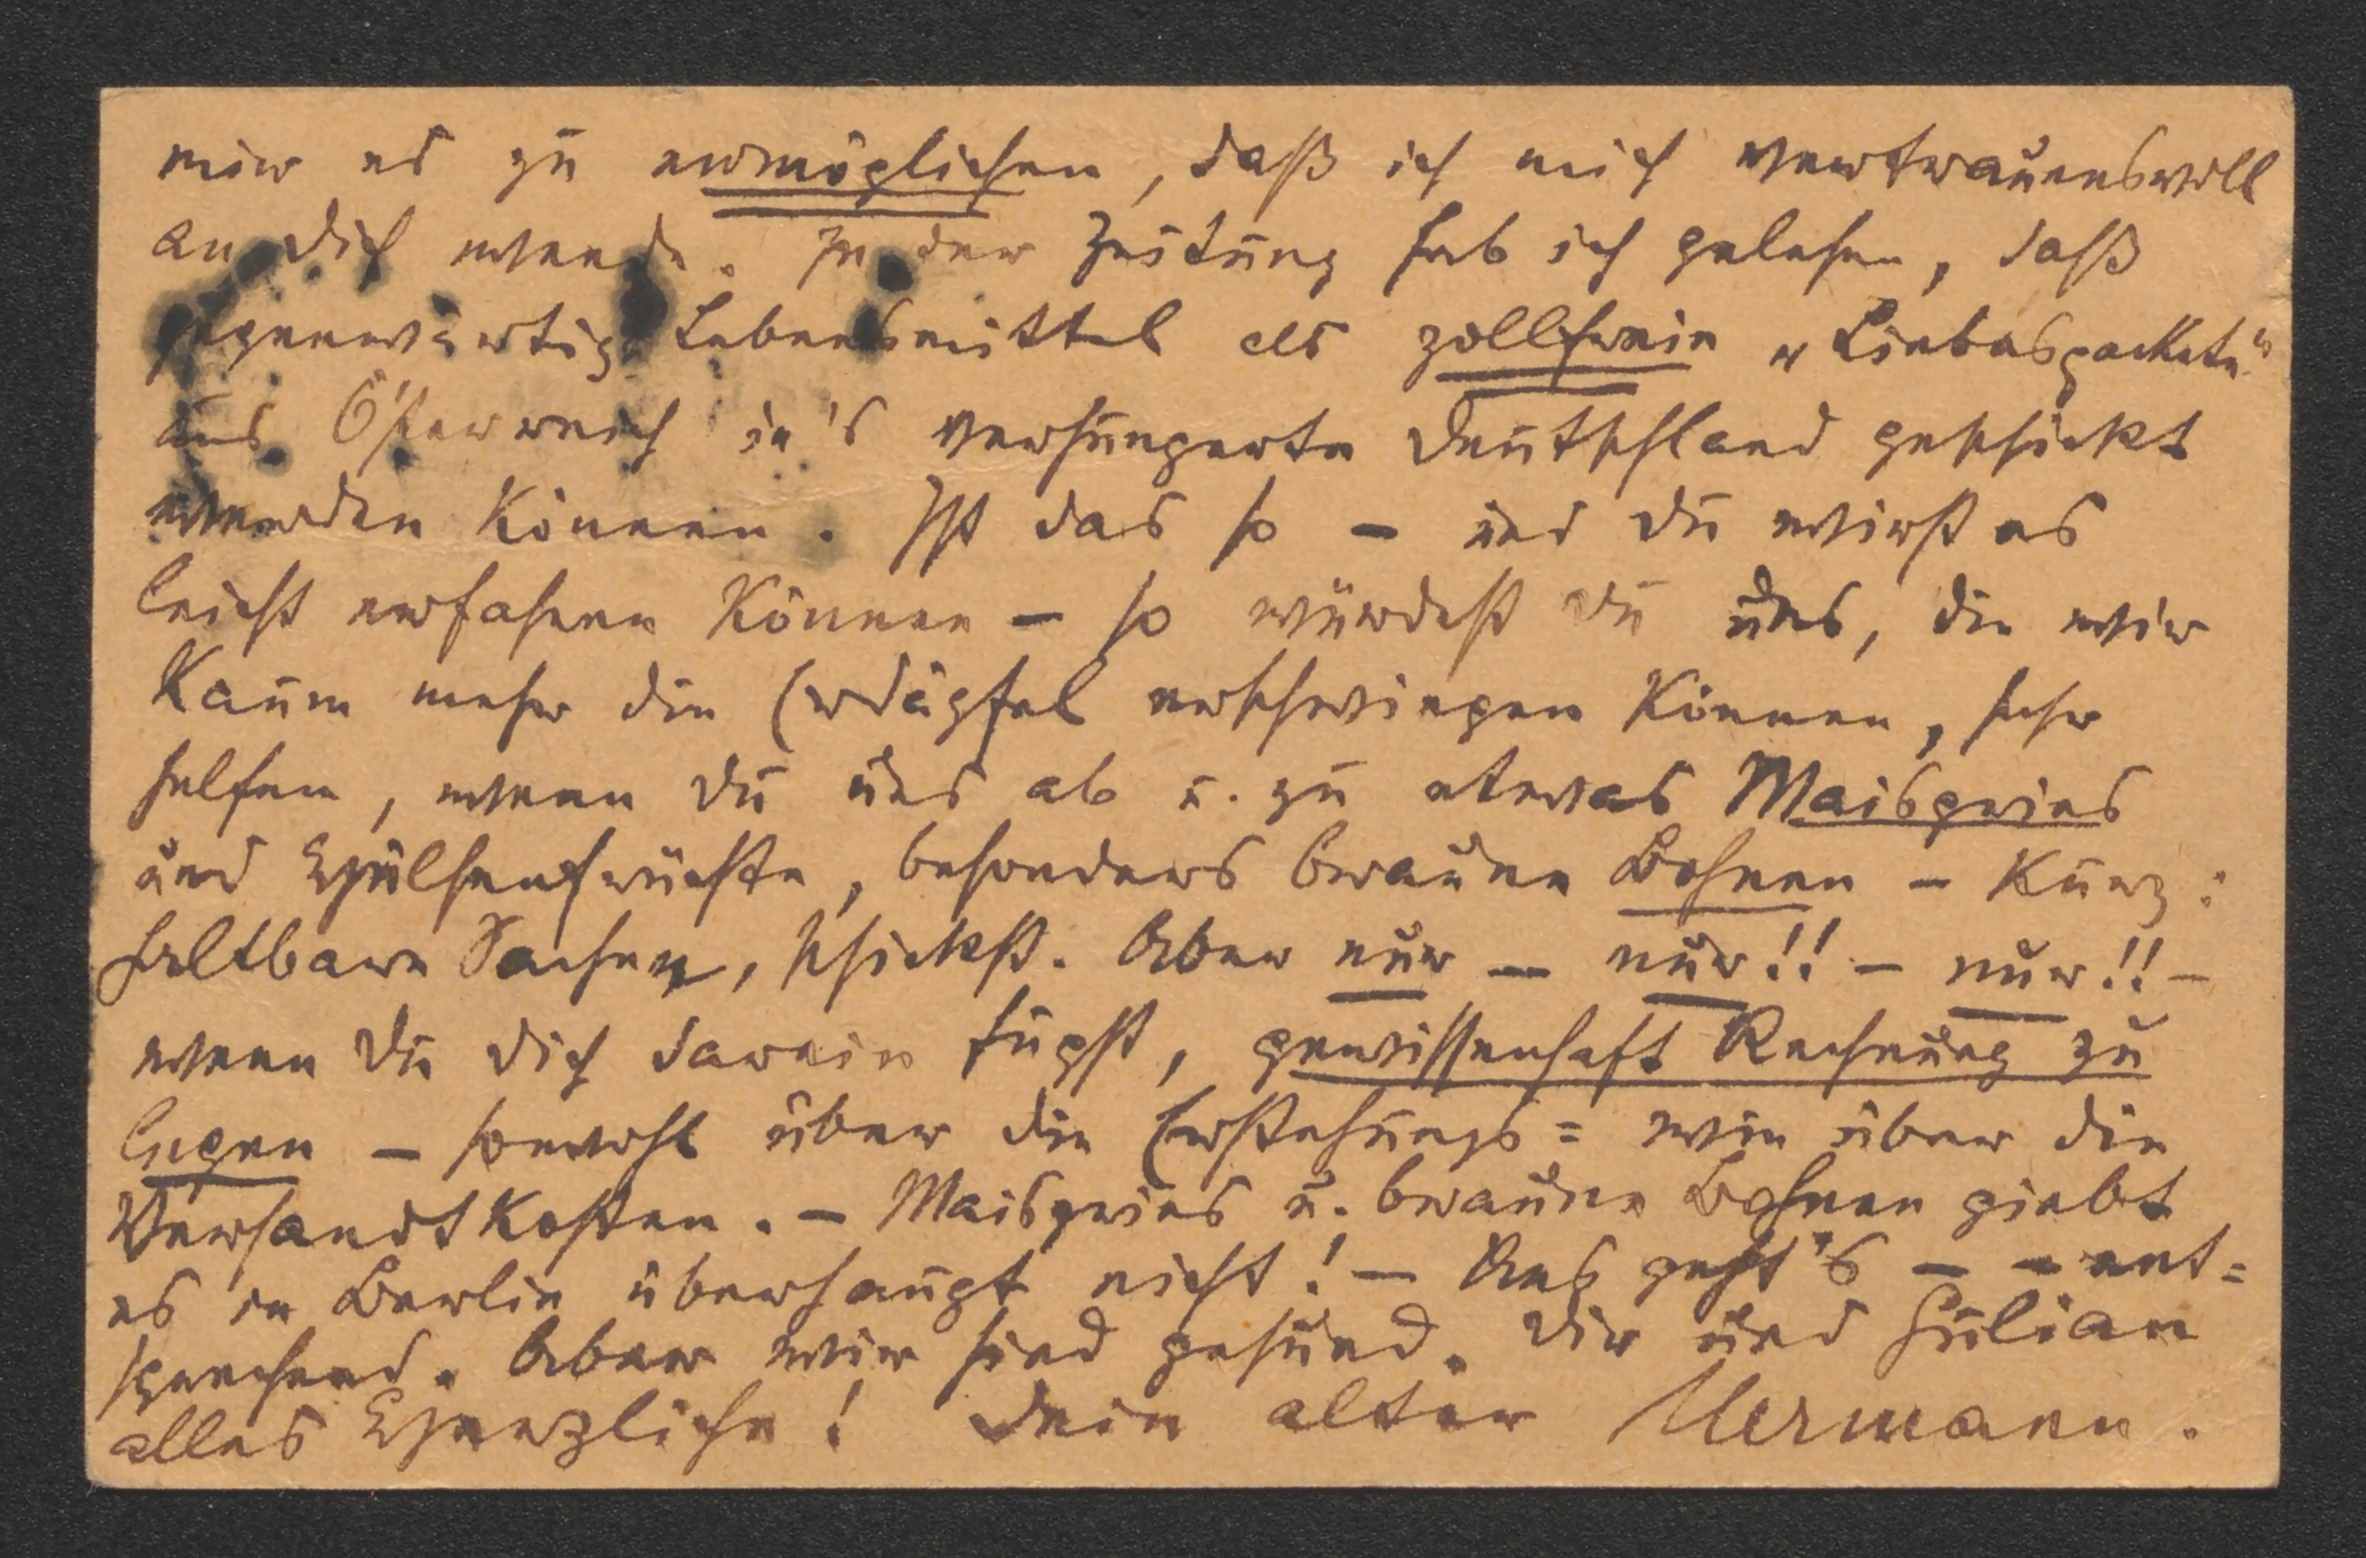 mir es zu ermöglichen, daß ich mich vertrauensvoll
an Dich wende. In der Zeitung hab ich gelesen, daß
gegenwärtig Lebensmittel als zollfreie „Liebespackete“
aus Österreich in's verhungerte Deutschland geschickt
werden können. Ist das so – und Du wirst es
leicht erfahren können – so würdest Du uns, die wir
kaum mehr die Erdäpfel erschwingen können, sehr
helfen, wenn Du uns ab u. zu etwas Maisgries
und Hülsenfrüchte, besonders braune Bohnen – kurz:
haltbare Sachen, schickst. Aber nur – nur!! – nur!! –
wenn Du Dich darein fügst, gewissenhaft Rechnung zu
legen – sowohl über die Erstehungs= wie über die
Versandtkosten. – Maisgries u. braune Bohnen giebt
es in Berlin überhaupt nicht! – Uns geht's – – ent=
sprechend. Aber wir sind gesund. Dir und Julian
alles Herzliche! Dein alter Hermann.